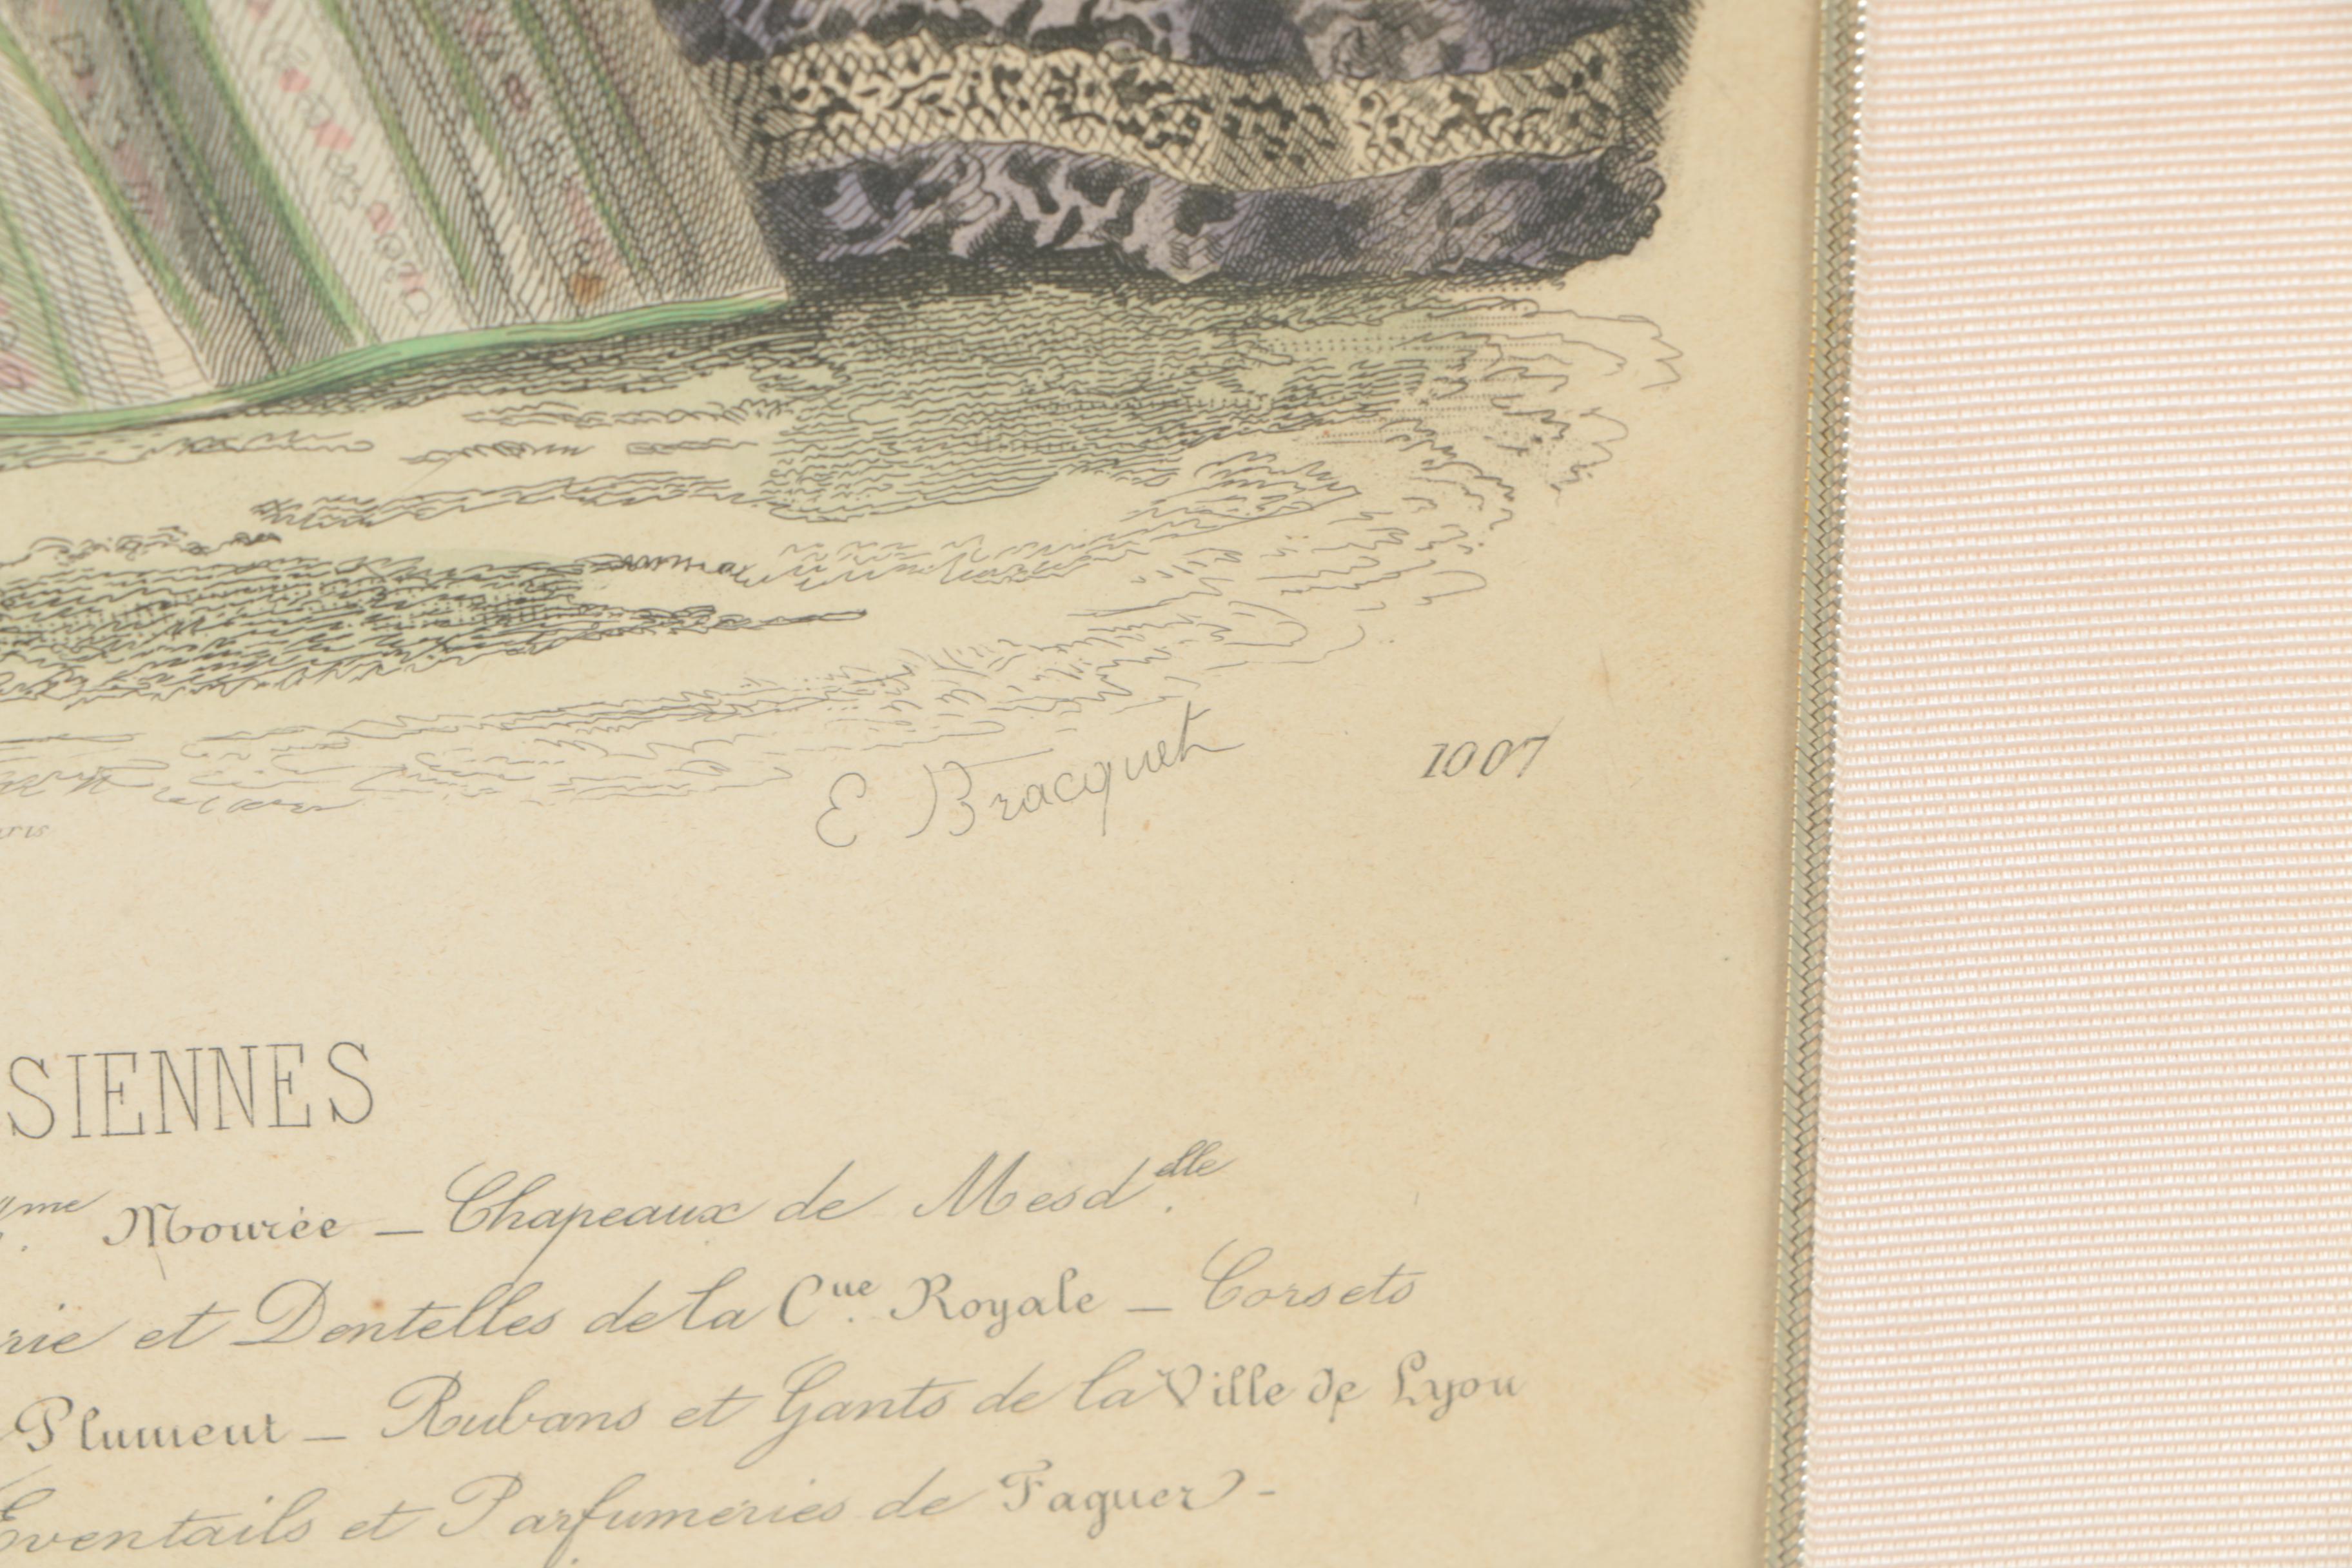 E Bracquet
1007
SIENNES
Mourée — Chapeaux de Mesd.elle
et Dentelles de la Cue. Royale — Corsets
Plument — Rubans et Gants de la Ville de Lyon
Eventails et Parfumeries de Faguer -